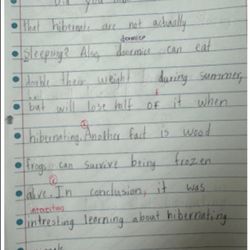 Did you
that hibernate are not actually
dormice
sleeping? Also, doormice can eat
double their weight during summer,
but will lose half of it when
hibernating. Another fact is wood
frogs can survive being frozen
alive. In conclusion, it was
intresting learning about hibernating